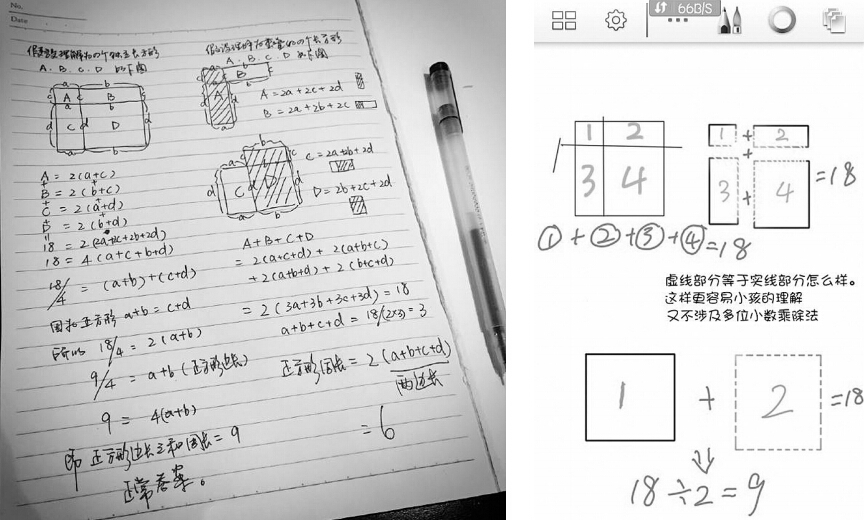 No.
Date
A、B、C、D 如下图
A、B、C、D 如下图
a b
c A B c
a b
d C d D d
a b
b
a B
A
d d
a
A = 2a+2c+2d
B = 2a+2b+2c
b
a
c
d C d D d
a b
C = 2a+2b+2d
D = 2b+2c+2d
A = 2(a+c)
+
B = 2(b+c)
+
C = 2(a+d)
+
D = 2(b+d)
18 = 2(2a+2c+2b+2d)
18 = 4(a+c+b+d)
18/4 = (a+b)+(c+d)
因为正方形 a+b = c+d
所以 18/4 = 2(a+b)
9/4 = a+b (正方形边长)
9 = 4(a+b)
即 正方形边长之和 周长 = 9
正常答案。
A+B+C+D
= 2(a+c+d) + 2(a+b+c)
+ 2(a+b+d) + 2(b+c+d)
= 2(3a+3b+3c+3d) = 18
a+b+c+d = 18/(2×3) = 3
正方形周长 = 2(a+b+c+d)
两边长
= 6
66B/S
1 2
3 4
①+②+③+④=18
1 + 2
+
3 + 4 =18
虚线部分等于实线部分怎么样。
这样更容易小孩的理解
又不涉及多位小数乘除法
1 + 2 =18
18÷2=9